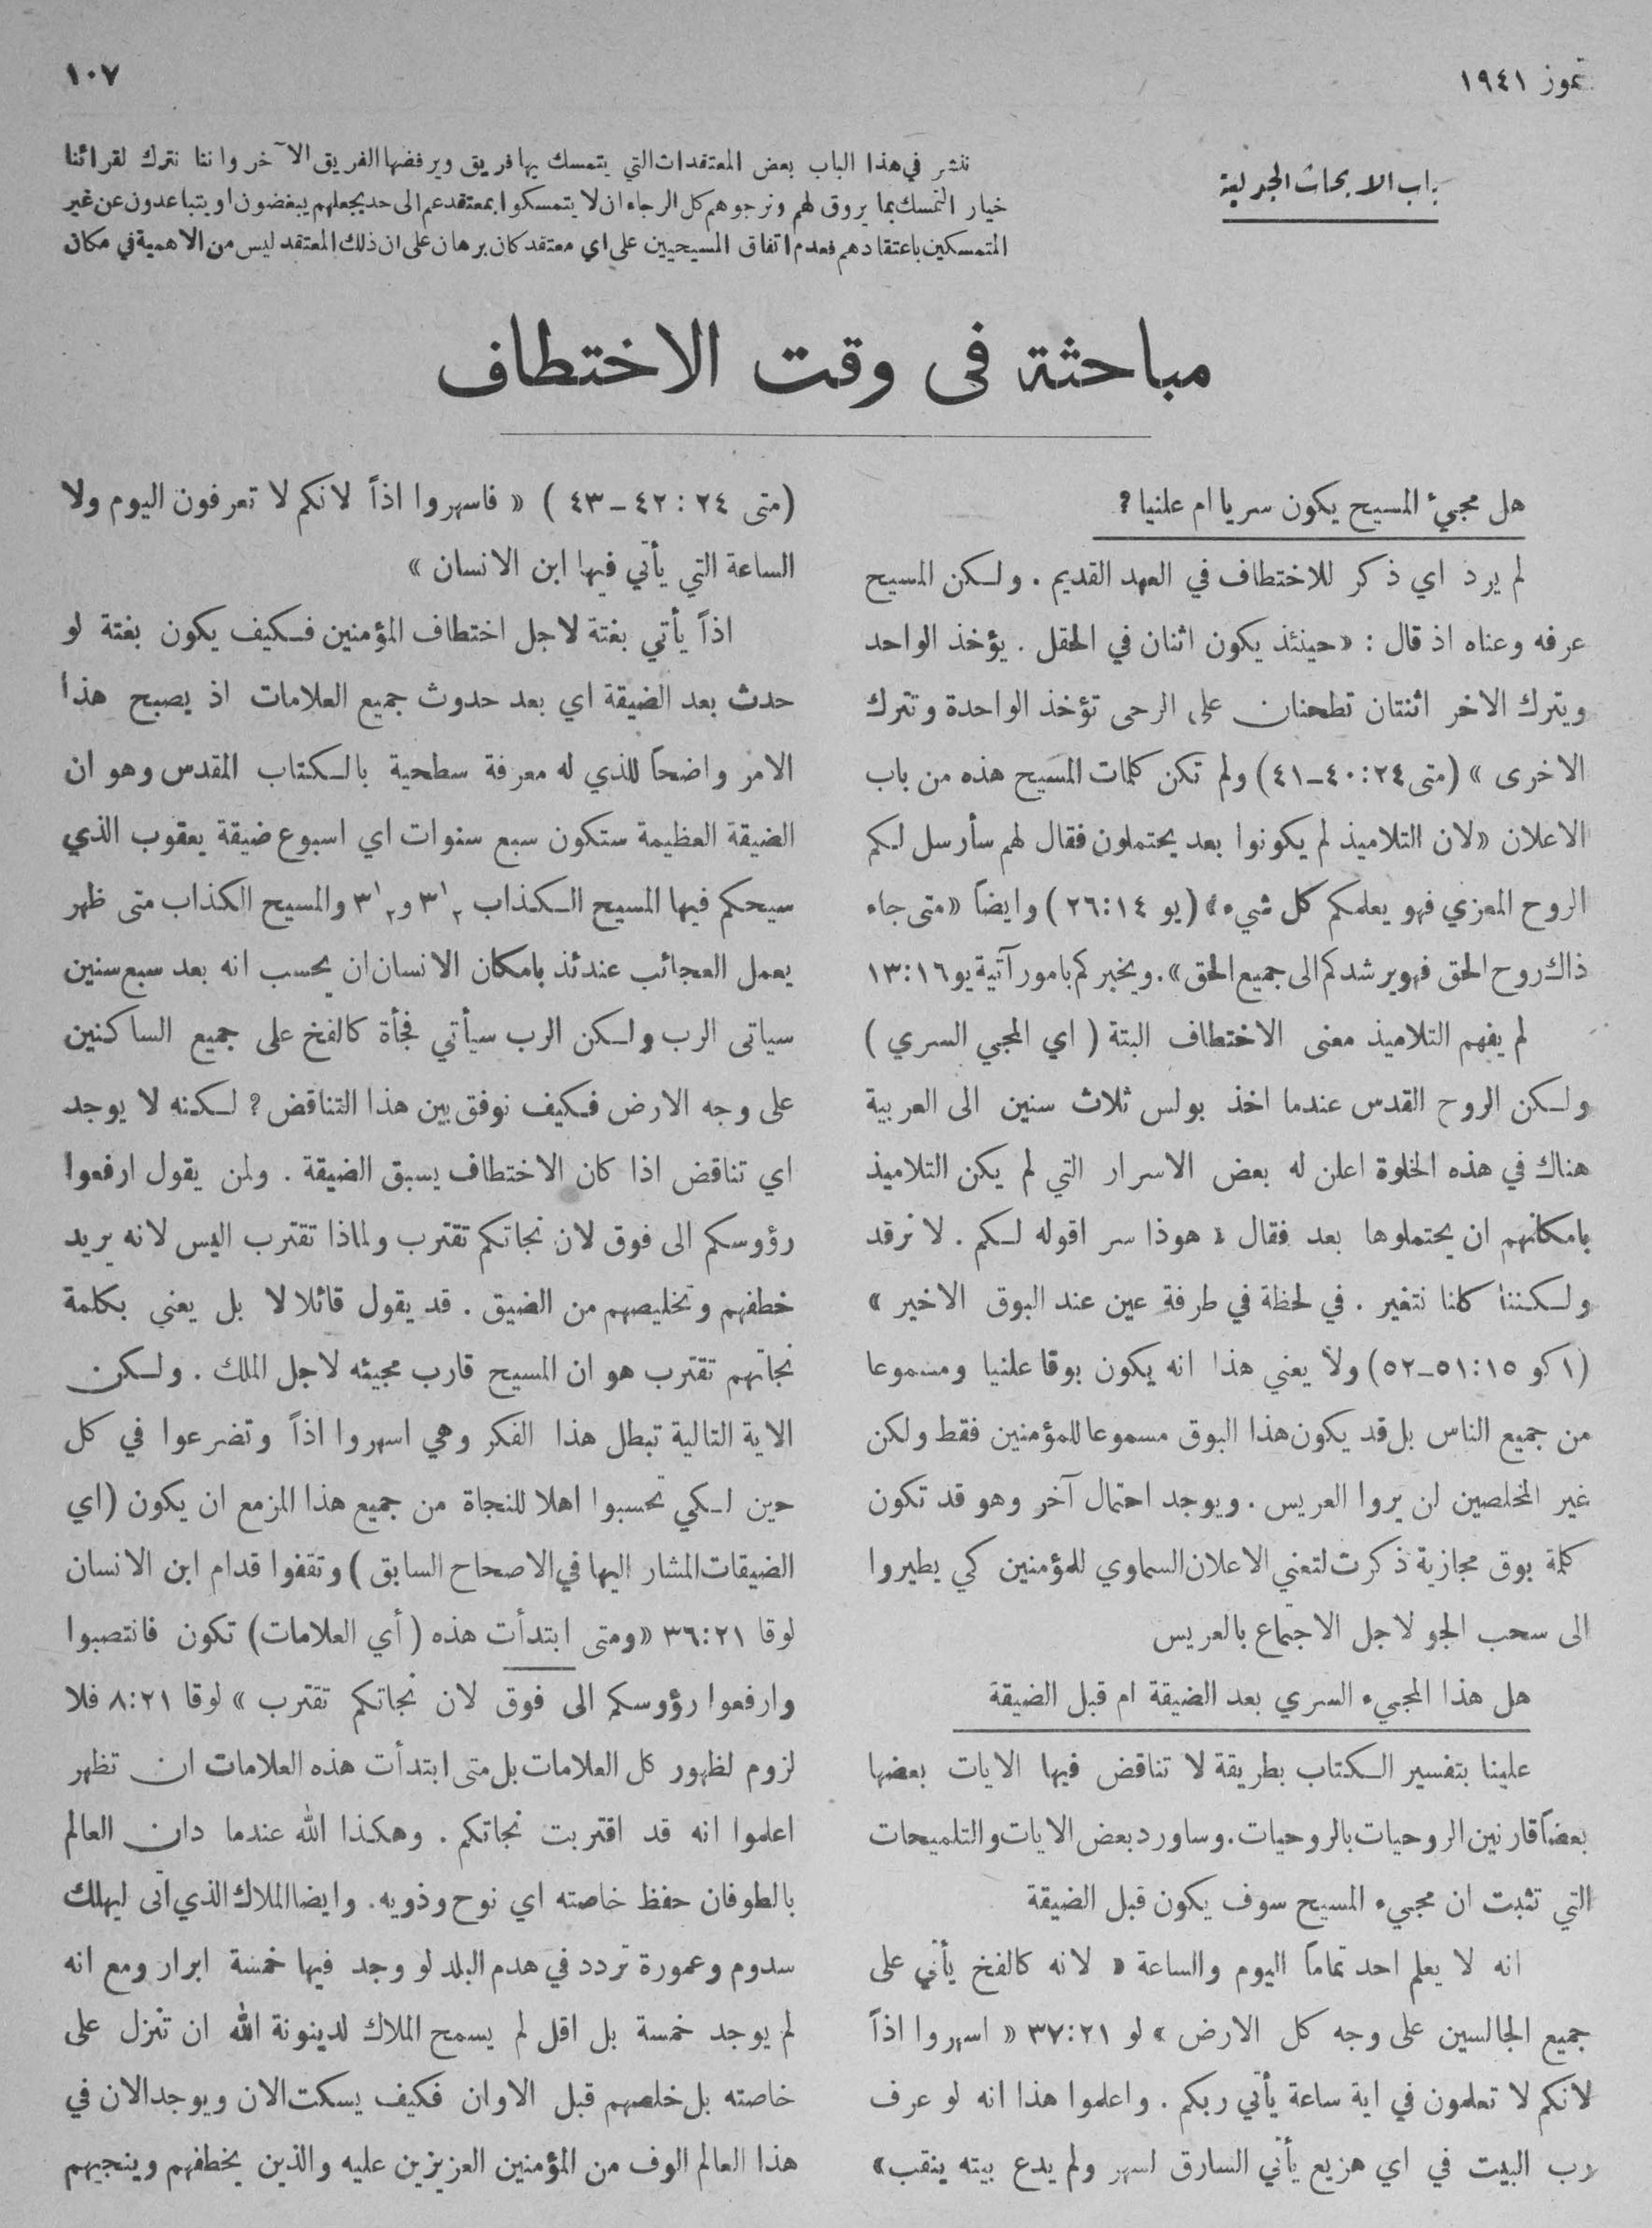 تموز ١٩٤١
١٠٧
باب الابحاث الجدلية
ننشر في هذا الباب بعض المعتقدات التي يتمسك بها فريق ويرفضها الفريق الآخر واننا نترك لقرائنا
خيار التمسك بما يروق لهم ونرجوهم كل الرجاء ان لا يتمسكوا بمعتقدهم الى حد يجعلهم يبغضون او يتباعدون عن غير
المتمسكين باعتقادهم فعدم اتفاق المسيحيين على اي معتقد كان برهان على ان ذلك المعتقد ليس من الاهمية في مكان
مباحثة في وقت الاختطاف
هل مجيئ المسيح يكون سريا ام علنيا ؟
لم يرد اي ذكر للاختطاف في العهد القديم . ولكن المسيح
عرفه وعناه اذ قال : « حينئذ يكون اثنان في الحقل . يؤخذ الواحد
ويترك الاخر اثنتان تطحنان على الرحى تؤخذ الواحدة وتترك
الاخرى » (متى ٢٤:٤٠-٤١) ولم تكن كلمات المسيح هذه من باب
الاعلان «لان التلاميذ لم يكونوا بعد يحتملون فقال لهم سأرسل لكم
الروح المعزي فهو يعلمكم كل شيء» (يو ١٤:٢٦) وايضاً «متى جاء
ذاك روح الحق فهو يرشدكم الى جميع الحق» . ويخبركم بامور آتية يو ١٦:١٣
لم يفهم التلاميذ معنى الاختطاف البتة ( اي المجي السري )
ولكن الروح القدس عندما اخذ بولس ثلاث سنين الى العربية
هناك في هذه الخلوة اعلن له بعض الاسرار التي لم يكن التلاميذ
بامكانهم ان يحتملوها بعد فقال « هوذا سر اقوله لكم . لا نرقد
ولكننا كلنا نتغير . في لحظة في طرفة عين عند البوق الاخير »
(١ كو ١٥:٥١-٥٢) ولا يعني هذا انه يكون بوقا علنيا ومسموعا
من جميع الناس بل قد يكون هذا البوق مسموعا للمؤمنين فقط ولكن
غير المخلصين لن يروا العريس . ويوجد احتمال آخر وهو قد تكون
كلمة بوق مجازية ذكرت لتعني الاعلان السماوي للمؤمنين كي يطيروا
الى سحب الجو لاجل الاجتماع بالعريس
هل هذا المجيء السري بعد الضيقة ام قبل الضيقة
علينا بتفسير الكتاب بطريقة لا تناقض فيها الايات بعضها
بعضاً قارنين الروحيات بالروحيات . وساورد بعض الايات والتلميحات
التي تثبت ان مجيء المسيح سوف يكون قبل الضيقة
انه لا يعلم احد تماماً اليوم والساعة « لانه كالفخ يأتي على
جميع الجالسين على وجه كل الارض » لو ٢١:٣٧ « اسهروا اذاً
لانكم لا تعلمون في اية ساعة يأتي ربكم . واعلموا هذا انه لو عرف
رب البيت في اي هزيع يأتي السارق لسهر ولم يدع بيته ينقب»
(متى ٢٤ : ٤٢-٤٣ ) « فاسهروا اذاً لانكم لا تعرفون اليوم ولا
الساعة التي يأتي فيها ابن الانسان »
اذاً يأتي بغتة لاجل اختطاف المؤمنين فكيف يكون بغتة لو
حدث بعد الضيقة اي بعد حدوث جميع العلامات اذ يصبح هذا
الامر واضحاً للذي له معرفة سطحية بالكتاب المقدس وهو ان
الضيقة العظيمة ستكون سبع سنوات اي اسبوع ضيقة يعقوب الذي
سيحكم فيها المسيح الكذاب ٣١⁄٢ و٣١⁄٢ والمسيح الكذاب متى ظهر
يعمل العجائب عندئذ بامكان الانسان ان يحسب انه بعد سبع سنين
سياتى الرب ولكن الرب سيأتي فجأة كالفخ على جميع الساكنين
على وجه الارض فكيف نوفق بين هذا التناقض ؟ لكنه لا يوجد
اي تناقض اذا كان الاختطاف يسبق الضيقة . ولمن يقول ارفعوا
رؤوسكم الى فوق لان نجاتكم تقترب ولماذا تقترب اليس لانه يريد
خطفهم وتخليصهم من الضيق . قد يقول قائلا لا بل يعني بكلمة
نجاتهم تقترب هو ان المسيح قارب مجيئه لاجل الملك . ولكن
الاية التالية تبطل هذا الفكر وهي اسهروا اذاً وتضرعوا في كل
حين لكي تحسبوا اهلا للنجاة من جميع هذا المزمع ان يكون (اي
الضيقات المشار اليها في الاصحاح السابق ) وتقفوا قدام ابن الانسان
لوقا ٢١:٣٦ «ومتى ابتدأت هذه (أي العلامات) تكون فانتصبوا
وارفعوا رؤوسكم الى فوق لان نجاتكم تقترب » لوقا ٢١:٨ فلا
لزوم لظهور كل العلامات بل متى ابتدأت هذه العلامات ان تظهر
اعلموا انه قد اقتربت نجاتكم . وهكذا الله عندما دان العالم
بالطوفان حفظ خاصته اي نوح وذويه . وايضا الملاك الذي اتى ليهلك
سدوم وعمورة تردد في هدم البلد لو وجد فيها خمسة ابرار ومع انه
لم يوجد خمسة بل اقل لم يسمح الملاك لدينونة الله ان تنزل على
خاصته بل خلصهم قبل الاوان فكيف يسكت الان ويوجد الان في
هذا العالم الوف من المؤمنين العزيزين عليه والذين يخطفهم وينجيهم